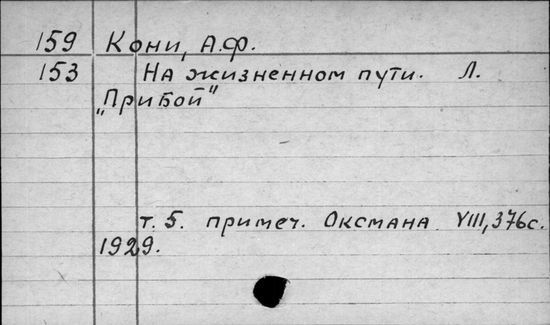 159 Кони, А.Ф.
153 На жизненном пути. Л.
„Прибой"
т. 5. примеч. Оксмана VIII, 376с.
1929.